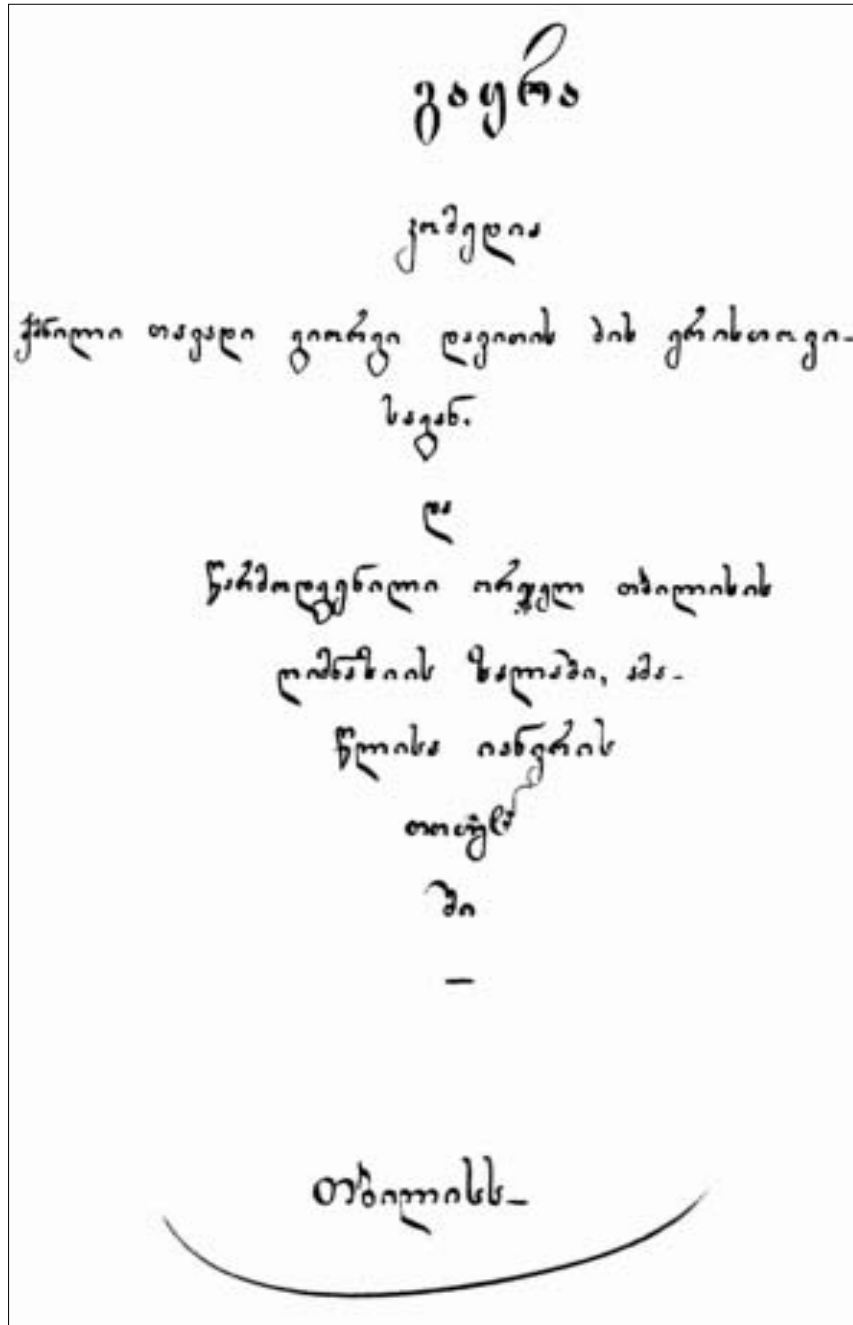 გაყრა
კომედია
ქმნილი თავადი გიორგი დავითის ძის ერისთოვი-
საგან.
და
წარმოდგენილი ორჯელ თბილისის
ღიმნაზიის ზალაში, ამა-
წლისა იანვრის
თთვეს
ში
–
თბილისს–